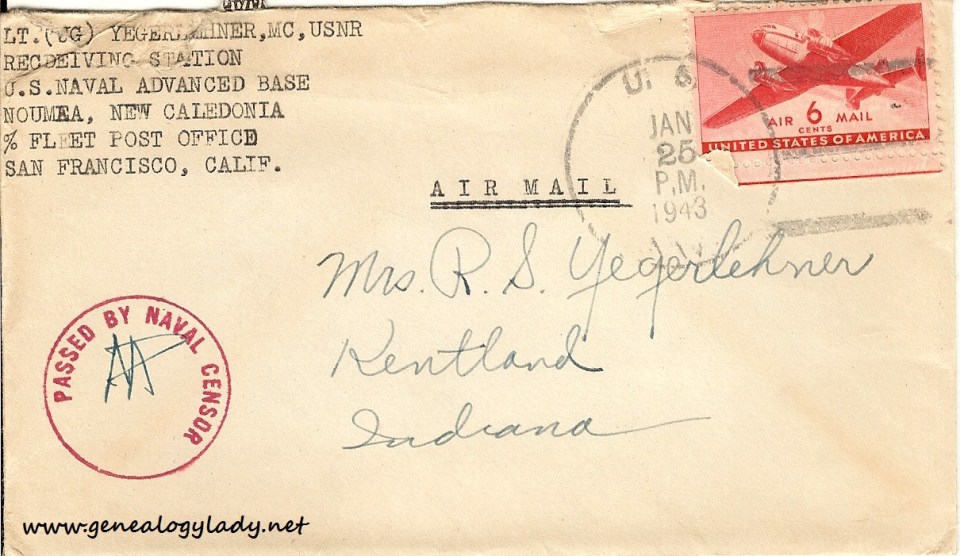 LT.(JG) YEGERLEHNER,MC,USNR
RECDEIVING STATION
U.S.NAVAL ADVANCED BASE
NOUMEA, NEW CALEDONIA
% FLEET POST OFFICE
SAN FRANCISCO, CALIF.
U. S.
JAN
25
P.M.
1943
NAVY
AIR 6 MAIL
CENTS
UNITED STATES OF AMERICA
AIR MAIL
Mrs. R. S. Yegerlehner
Kentland
Indiana
PASSED BY NAVAL CENSOR
www.genealogylady.net